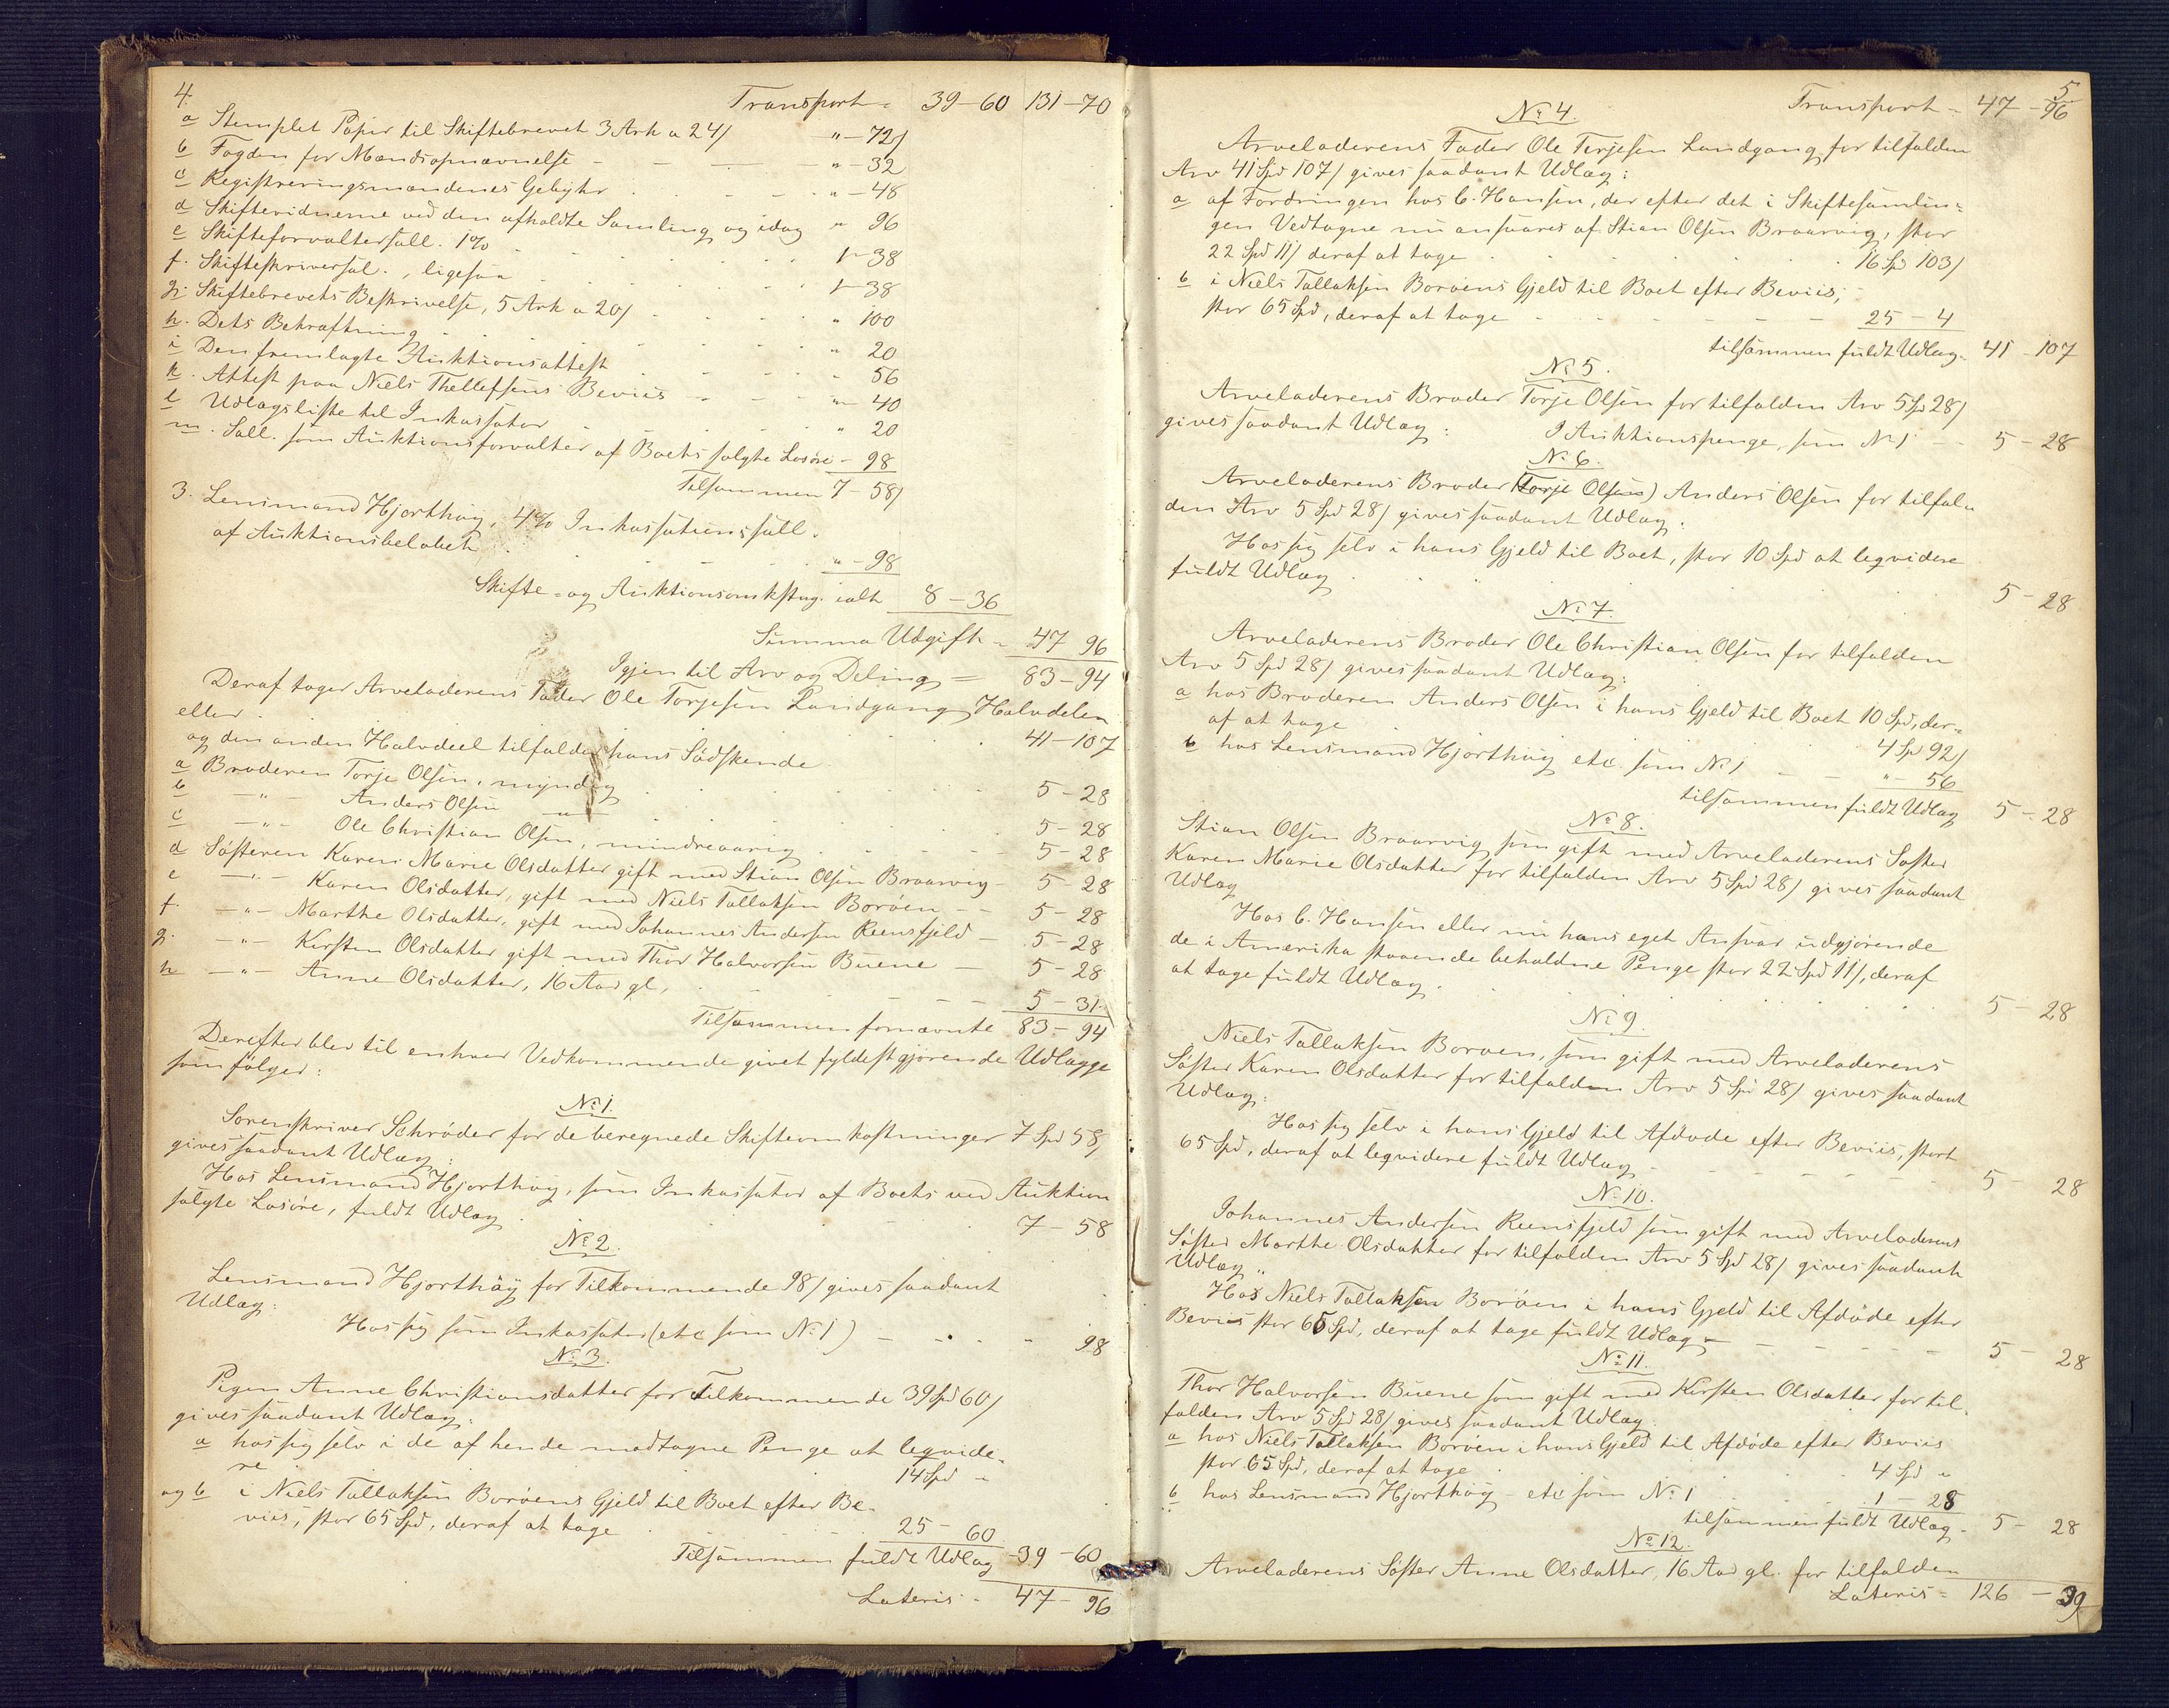 4.
Transport = 39-60 131-70
a Stemplet Papir til Skiftebrevet 3 Ark a 24/ " - 72/
b Fogden for Mændsopnævnelse - - - " - 32
c Registreringsmændenes Gebyhr - - - " - 48
d Skiftevidnerne ved den afholdte Samling og idag " 96
e Skifteforvaltersall. 1% 1-38
f. Skifteskriversal., ligesaa 1-38
g. Skiftebrevets Beskrivelse, 5 Ark a 20/ " 100
h. Dets Bekræftning " 20
i Den fremlagte Auktionsattest " 56
k. Attest paa Niels Thellefsens Beviis - - - "- 40
l Udlægsliste til Inkassator " 20
m. Sall. som Auktionsforvalter af Boets solgte Løsöre - 98
Tilsammen 7-58/
3. Lensmand Hjorthøy, 4% Inkassationssall.
af Auktionsbeløbet " - 98
Skifte- og Auktionsomkstng. ialt 8-36
Summa Udgift = 47 96
Igjen til Arv og Deling = 83-94
Deraf tager Arveladerens Fader Ole Terjesen Landgang Halvdelen
eller 41-107
og den anden Halvdeel tilfalder hans Södskende
a Broderen Torje Olsen, myndig 5-28
b -"- Anders Olsen -"- 5-28
c -"- Ole Christian Olsen, mindreaarig 5-28
d Söstren Karen Marie Olsdatter gift med Stian Olsen Braarvig - 5-28
e -"- Karen Olsdatter, gift med Niels Tallaksen Boröen - - 5-28
f. -"- Marthe Olsdatter, gift med Johannes Andersen Reensfjeld - 5-28
g. -"- Kirsten Olsdatter gift med Thor Halvorsen Buene - 5-28
h -"- Anne Olsdatter, 16 Aar gl, 5-31
Tilsammen fornævnte 83-94
Derefter blev til enhver Vedkommende givet fyldestgjørende Udlægge
som fölger:
No 1.
Sorenskriver Schröder for de beregnede Skifteomkostninger 7 Spd 58/
gives saadant Udlæg:
Hos Lensmand Hjorthøy, som Inkassator af Boets ved Auktion
solgte Løsöre, fuldt Udlæg 7-58
No 2.
Lensmand Hjorthöy for Tilkommende 98/ gives saadant
Udlæg:
Hos sig som Inkassator (etc som No 1) - - - - 98
No 3.
Pigen Anne Christiansdatter for Tilkommende 39 Spd 60/
gives saadant Udlæg:
a hos sig selv i de af hende modtagne Penge at leqvide-
re 14 Spd "
og b i Niels Tallaksen Boröens Gjeld til Boet efter Be-
viis, stor 65 Spd, deraf at tage 25-60
Tilsammen fuldt Udlæg - 39-60
Lateris - 47-96
5
Transport - 47-96
No 4.
Arveladerens Fader Ole Terjesen Landgang for tilfalden
Arv 41 Spd 107/ gives saadant Udlæg:
a af Fordringen hos C. Hansen, der efter det i Skiftesamlin-
gen Vedtagne nu ansvares af Stian Olsen Braarvig, stor
22 Spd 11/ deraf at tage 16 Sp 103/
b i Niels Tallaksen Boröens Gjeld til Boet efter Beviis,
stor 65 Spd, deraf at tage 25-4
tilsammen fuldt Udlæg - 41-107
No 5.
Arveladerens Broder Torje Olsen for tilfalden Arv 5 Sp 28/
gives saadant Udlæg: I Auktionspenge, som No 1 - - 5-28
No 6.
Arveladerens Broder (Torje Olsens) Anders Olsen for tilfal-
den Arv 5 Spd 28/ gives saadant Udlæg:
Hos sig selv i hans Gjeld til Boet, stor 10 Spd at leqvidere
fuldt Udlæg 5-28
No 7.
Arveladerens Broder Ole Christian Olsen for tilfalden
Arv 5 Spd 28/ gives saadant Udlæg:
a hos Broderen Anders Olsen i hans Gjeld til Boet 10 Spd, der-
af at tage 4 Spd 92/
b hos Lensmand Hjorthöy etc. som No 1 - - "- 56
tilsammen fuldt Udlæg 5-28
No 8.
Stian Olsen Braarvig som gift med Arveladerens Søster
Karen Marie Olsdatter for tilfalden Arv 5 Spd 28/ gives saadant
Udlæg
Hos C. Hansen eller nu hans eget Ansvar udgjørende
de i Amerika staaende beholdne Penge stor 22 Spd 11/, deraf
at tage fuldt Udlæg. 5-28
No 9.
Niels Tallaksen Boröen, som gift med Arveladerens
Söster Karen Olsdatter for tilfalden Arv 5 Spd 28/ gives saadant
Udlæg:
Hos sig selv i hans Gjeld til Afdøde efter Beviis, stort
65 Spd, deraf at leqvidere fuldt Udlæg - - - 5-28
No 10.
Johannes Andersen Reensfjeld som gift med Arveladerens
Söster Marthe Olsdatter for tilfalden Arv 5 Spd 28/ gives saadant
Udlæg"
Hos Niels Tallaksen Boröen i hans Gjeld til Afdöde efter
Beviis stor 65 Spd, deraf at tage fuldt Udlæg - - - 5-28
No 11.
Thor Halvorsen Buene som gift med Kirsten Olsdatter for til-
falden Arv 5 Spd 28/ gives saadant Udlæg.
a hos Niels Tallaksen Boröen i hans Gjeld til Afdöde efter Beviis
stor 65 Spd, deraf at tage 4 Spd "
b hos Lensmand Hjorthøy - etc som No 1 1-28
tilsammen fuldt Udlæg - 5-28
No 12.
Arveladerens Söster Anne Olsdatter, 16 Aar gl. for tilfalden
Lateris = 126-39